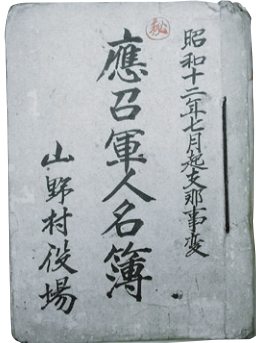 昭和十二年七月起支那事変
㊙
應召軍人名簿
山野村役場